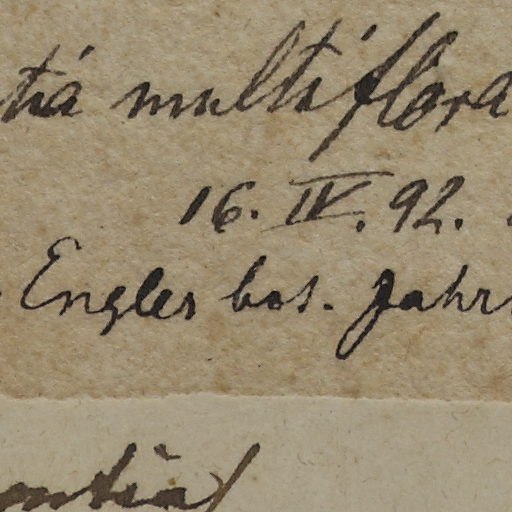 tia multiflora
16. IV. 92.
Engler bot. Jahr
entia